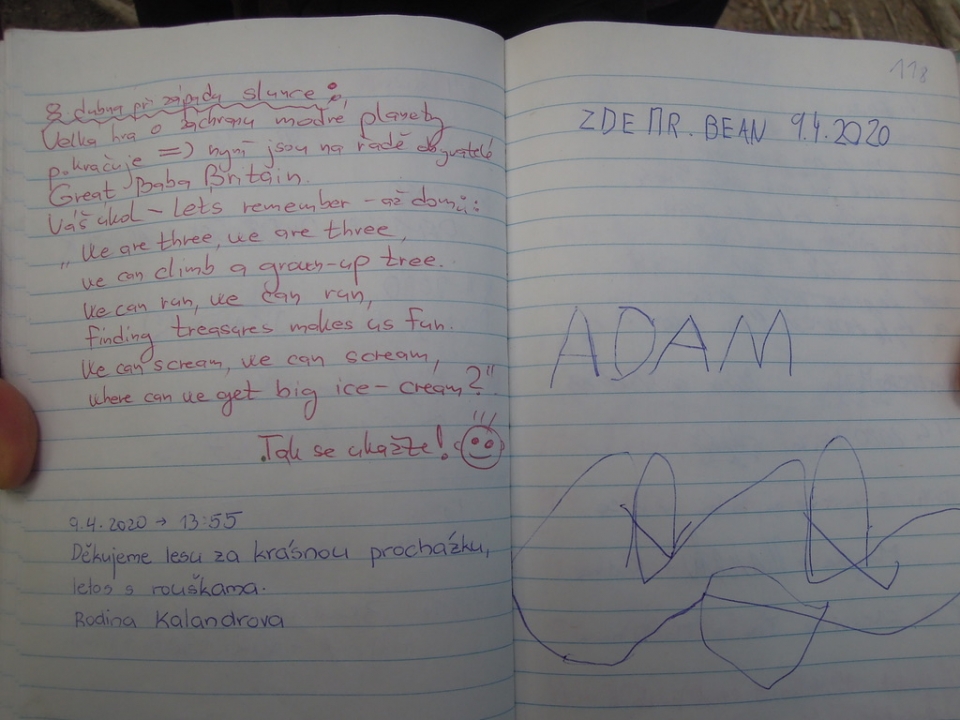 8. dubna při západu slunce:
Velká hra o záchranu modré planety
pokračuje =) nyní jsou na řadě obyvatelé
Great Baba Britain.
Váš úkol - let's remember - až domů:
"We are three, we are three,
we can climb a grown-up tree.
We can run, we can run,
finding treasures makes us fun.
We can scream, we can scream,
where can we get big ice-cream?"
Tak se ukažte!
9.4.2020 → 13:55
Děkujeme lesu za krásnou procházku,
letos s rouškama.
Rodina Kalandrova
118
ZDE MR. BEAN 9.4.2020
ADAM